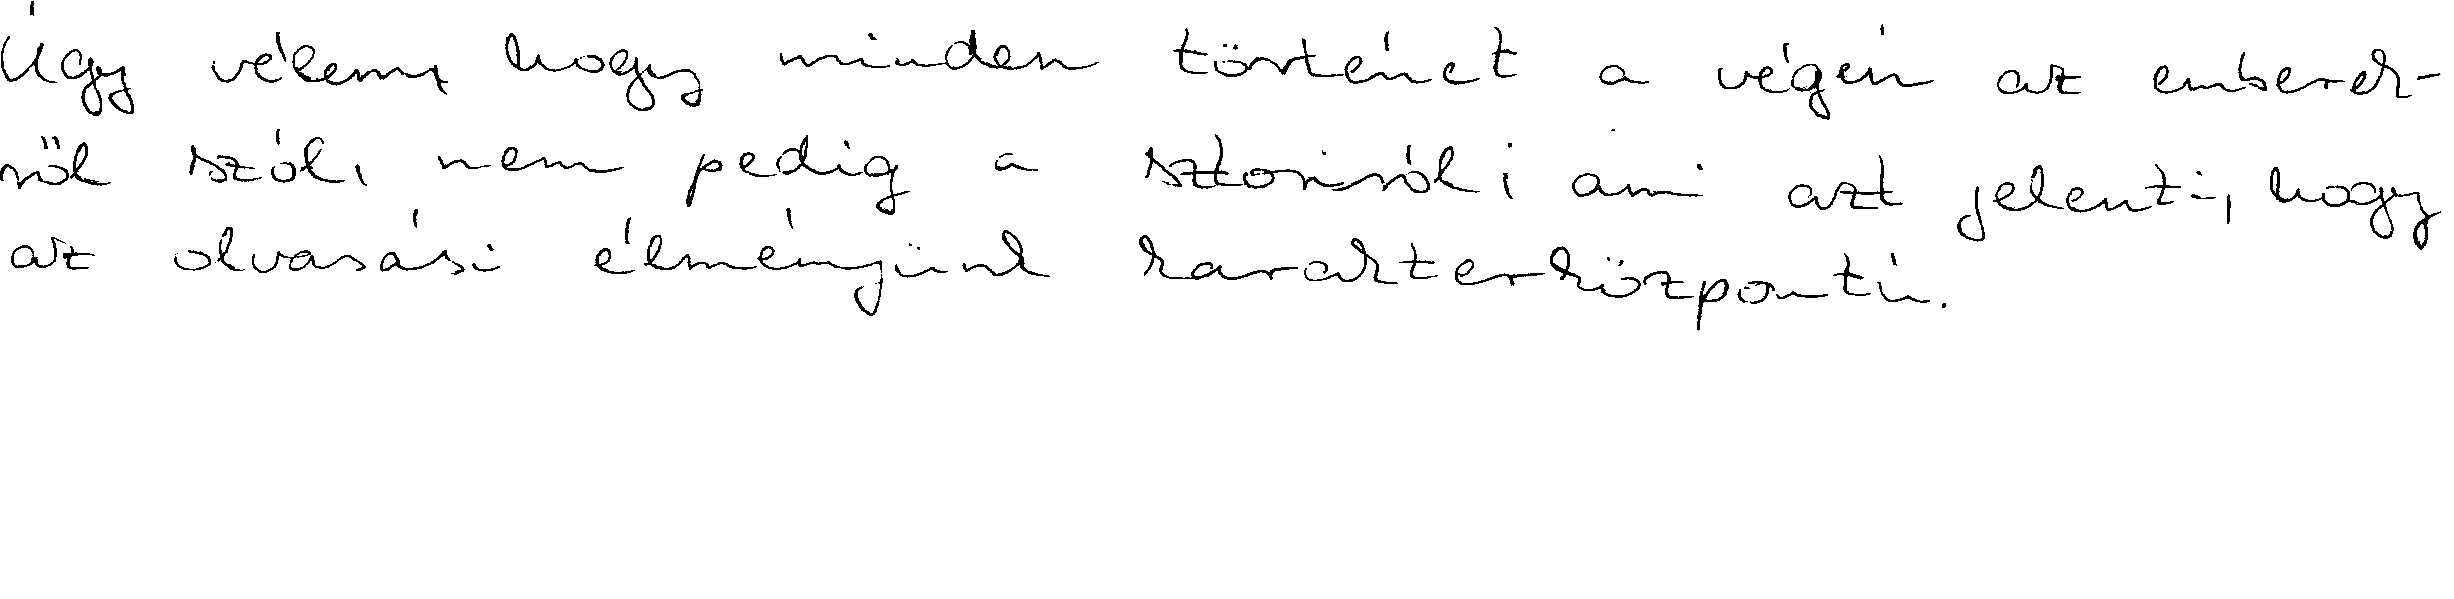 Úgy vélem, hogy minden történet a végén az emberek-
ről szól, nem pedig a sztoriról, ami azt jelenti, hogy
az olvasási élményünk karakterközpontú.